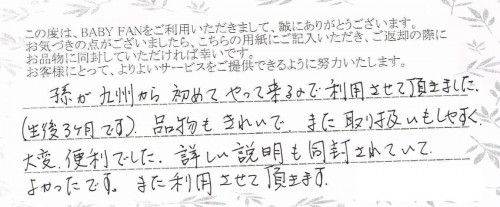 この度は、BABY FANをご利用いただきまして、誠にありがとうございます。
お気づきの点がございましたら、こちらの用紙にご記入いただき、ご返却の際に
お品物に同封していただければ幸いです。
お客様にとって、よりよいサービスをご提供できるように努力いたします。
孫が九州から初めてやって来るので利用させて頂きました。
(生後3ヶ月です)。品物もきれいで、また取り扱いもしやすく、
大変、便利でした。詳しい説明も同封されていて、
よかったです。また利用させて頂きます。